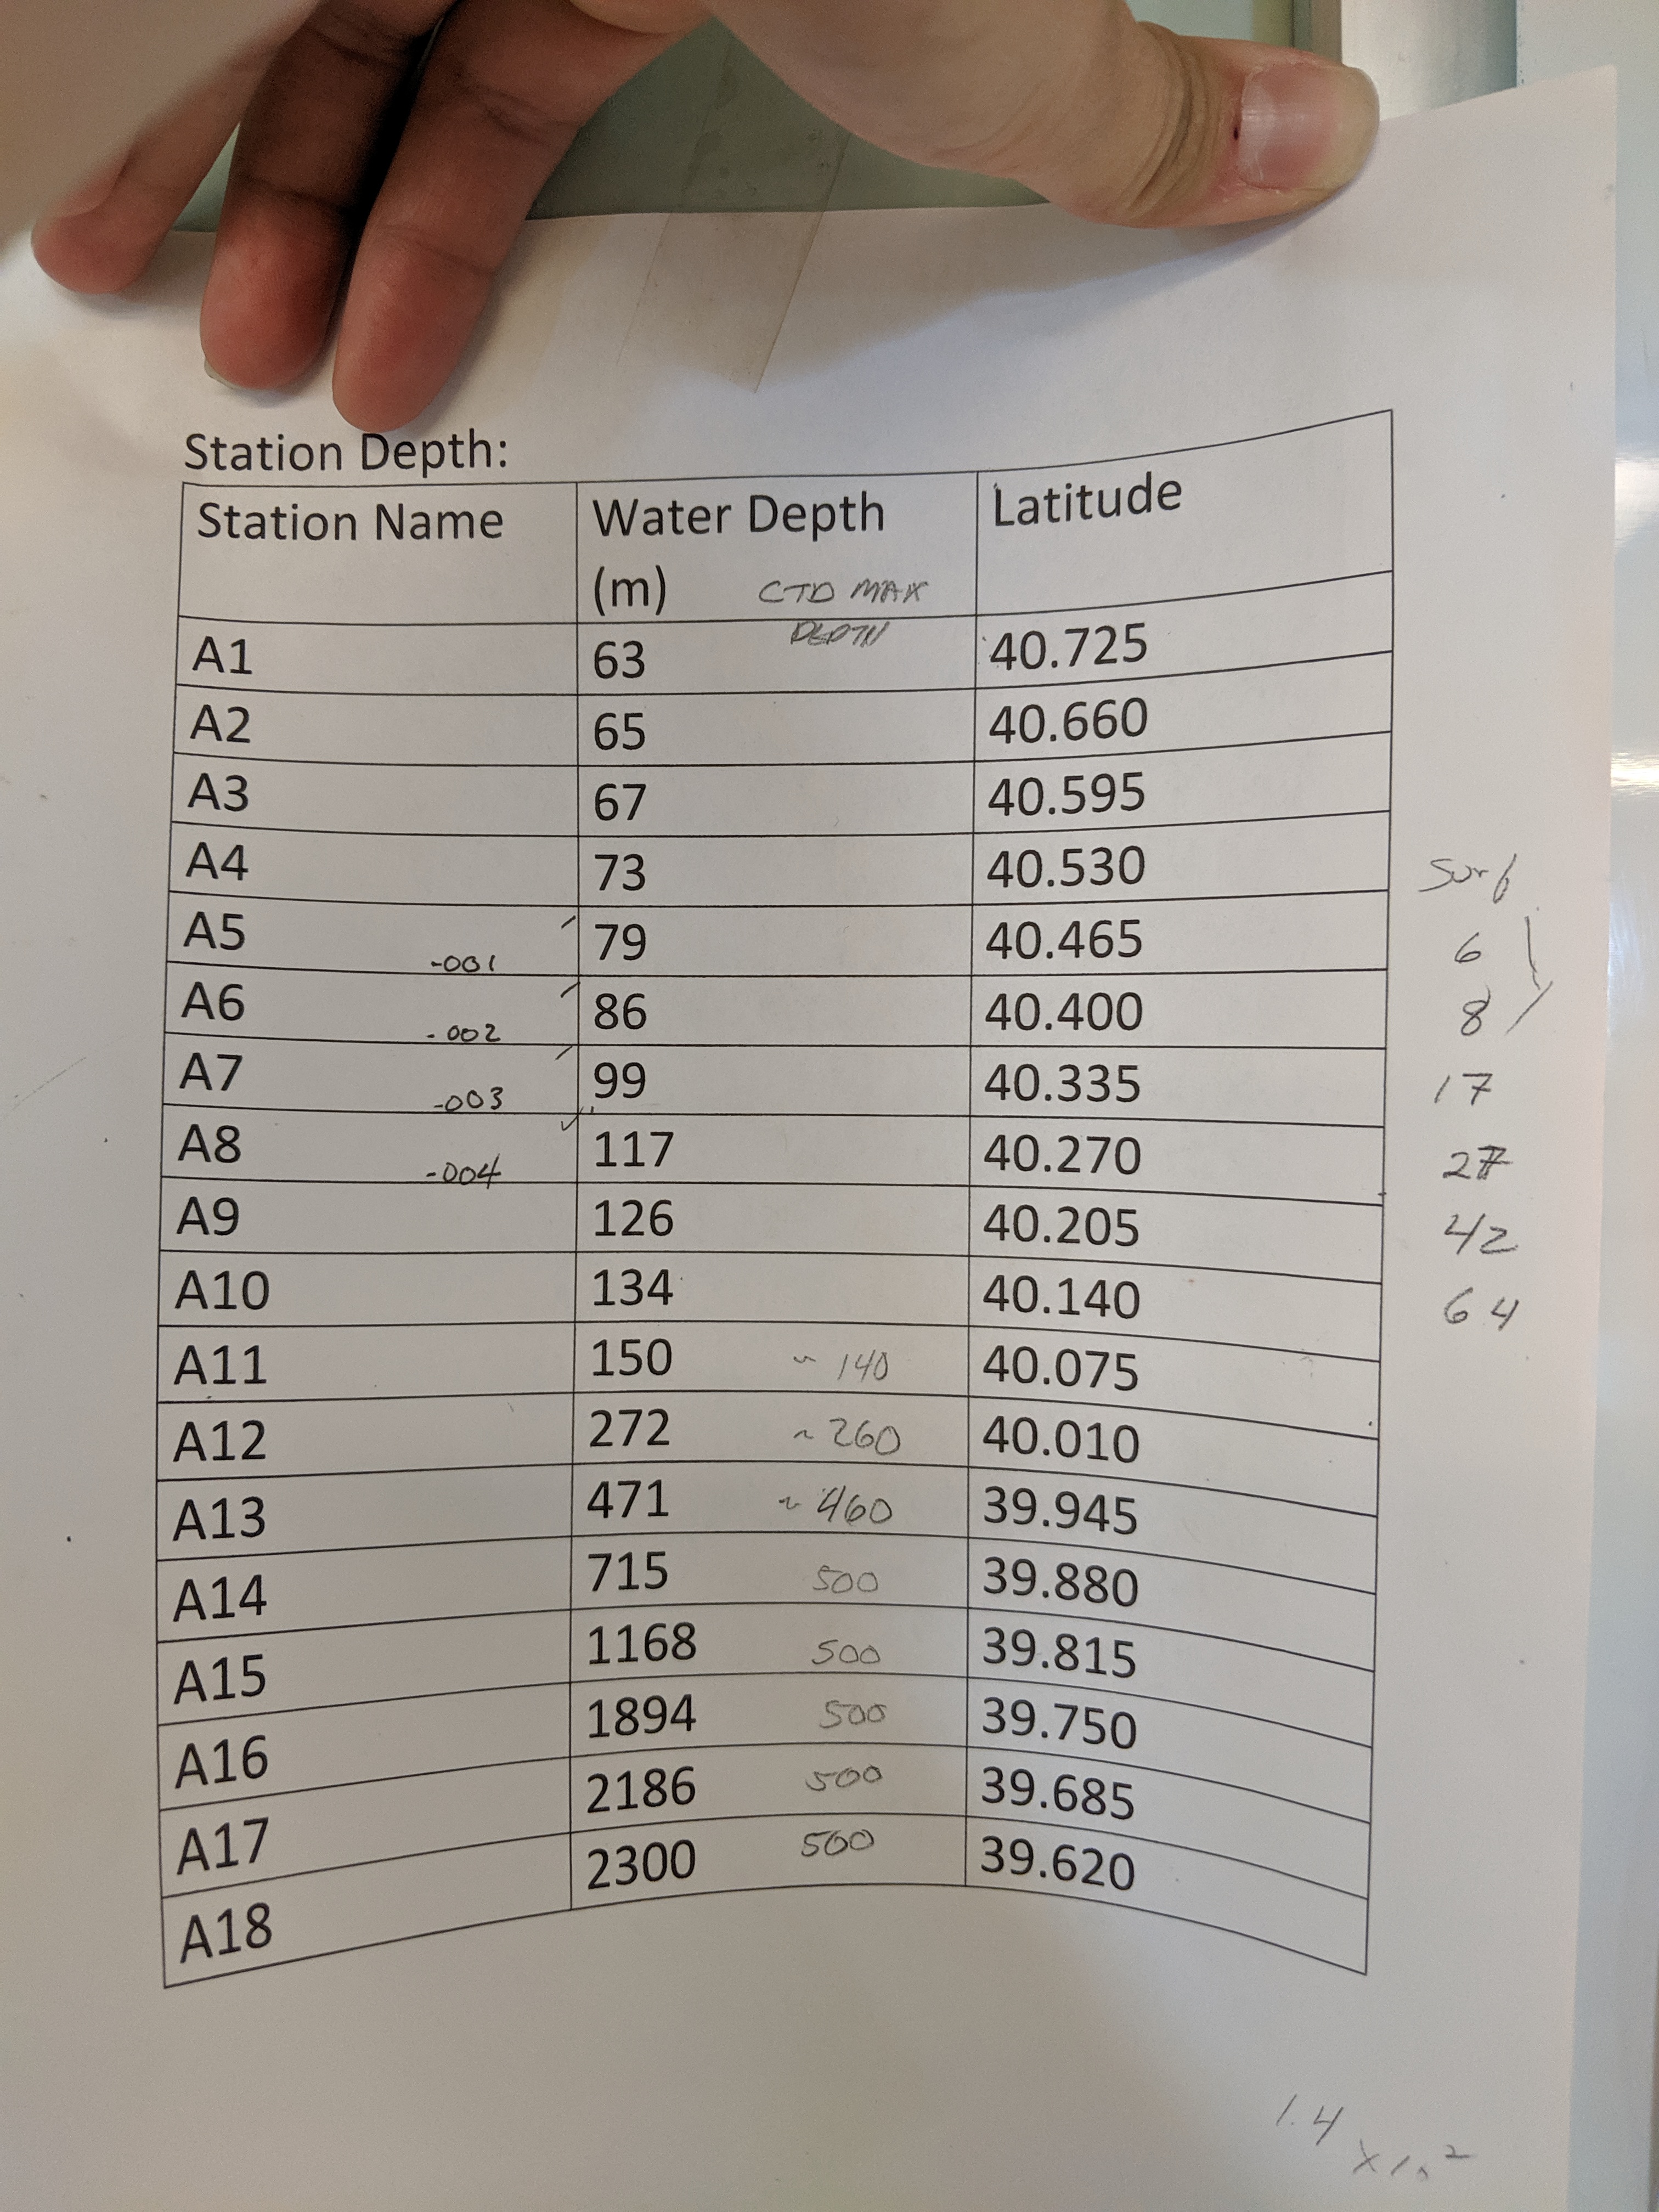 Station Depth:
Station Name Water Depth (m) CTD MAX DEPTH Latitude
A1 63 40.725
A2 65 40.660
A3 67 40.595
A4 73 40.530
A5 -001 79 40.465
A6 -002 86 40.400
A7 -003 99 40.335
A8 -004 117 40.270
A9 126 40.205
A10 134 40.140
A11 150 ~ 140 40.075
A12 272 ~ 260 40.010
A13 471 ~ 460 39.945
A14 715 500 39.880
A15 1168 500 39.815
A16 1894 500 39.750
A17 2186 500 39.685
A18 2300 500 39.620
Surf
6
8
17
27
42
64
1.4 x10²